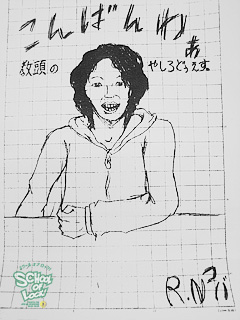 こんばんわぁ
教頭の やしろどぅえす。
SCHOOL
OF
LOCK!
R.N